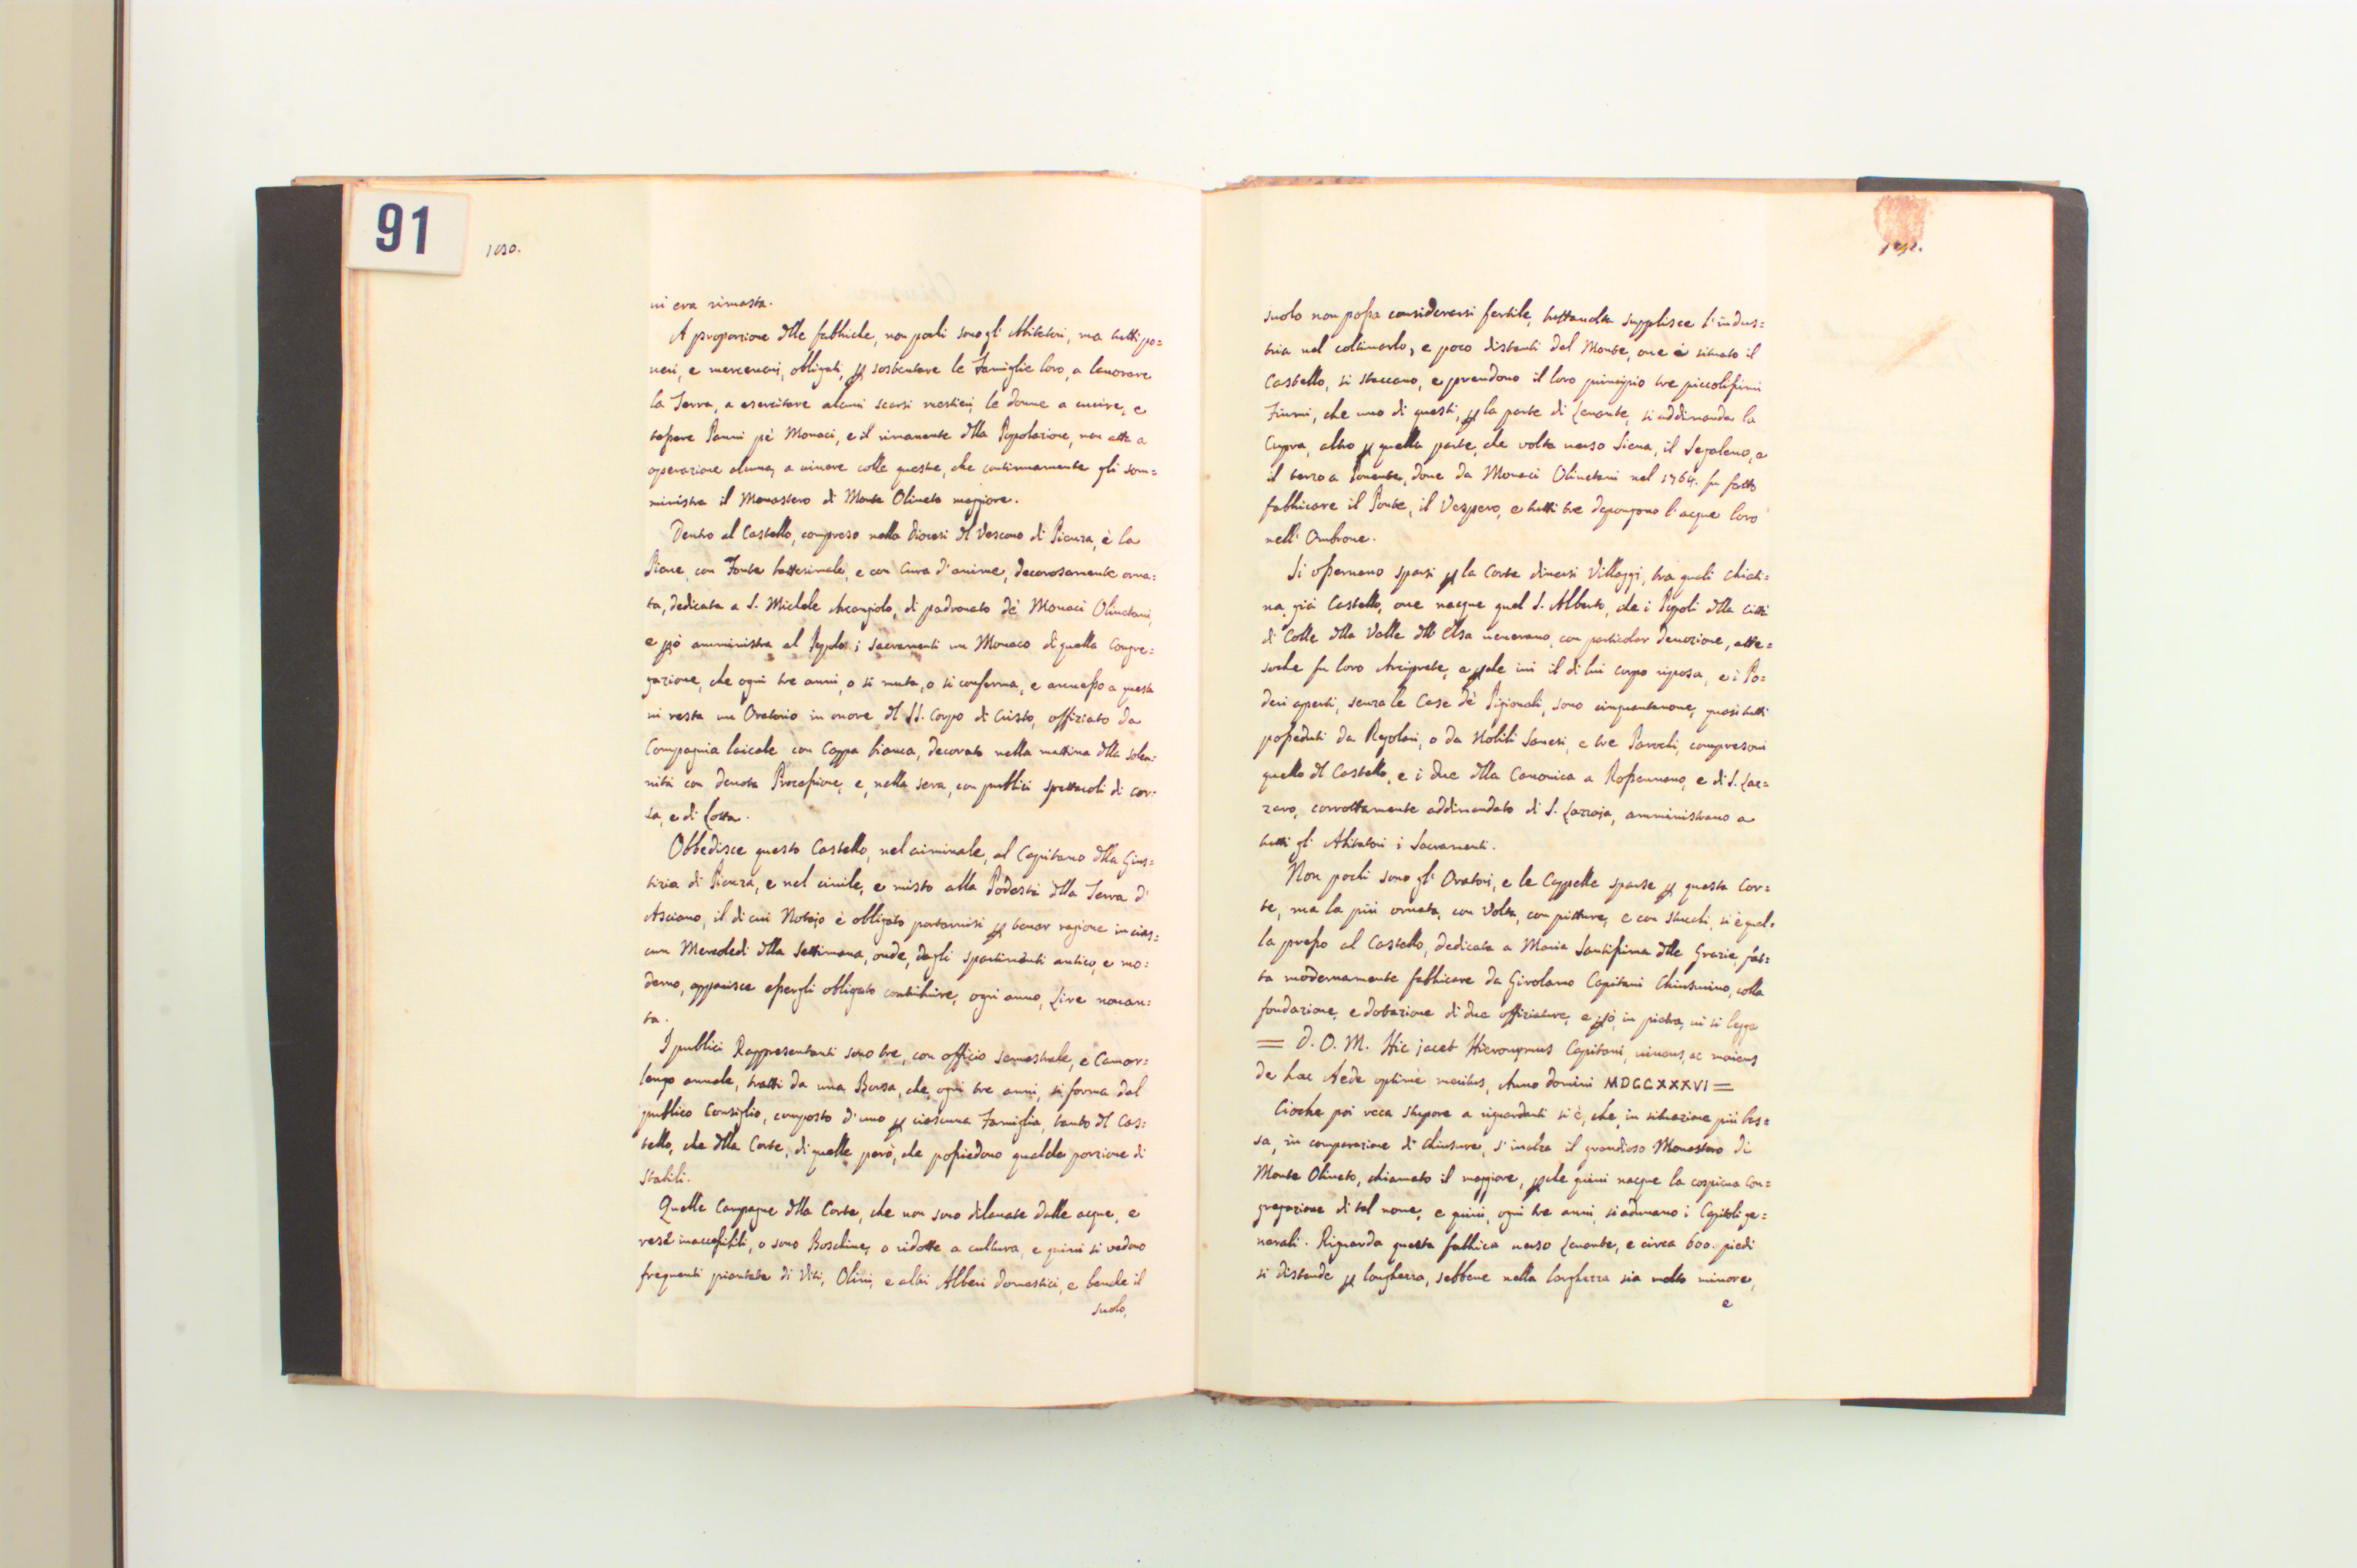 91
1030.
vi era rimasta.
A proporzione dlle fabbriche, non pochi sono gl' Abitatori, ma tutti po=
veri, e mercenarj, obbligati, p sostentare le Famiglie loro, a lavorare
la Terra, a esercitare alcuni scarsi mestieri, le donne a cucire, e
tessere Panni pe' Monaci, e il rimanente dlla Popolazione, non atta a
operazione alcuna, a vivere colle questue, che continuamente gli som=
ministra il Monastero di Monte Oliveto maggiore.
Dentro al Castello, compreso nella Diocesi dl Vescovo di Pienza, è la
Pieve, con Fonte battesimale, e con Cura d'anime, decorosamente orna=
ta, dedicata a S. Michele Arcangiolo, di padronato de' Monaci Olivetani,
e pò amministra al Popolo i Sacramenti un Monaco di quella Congre=
gazione, che ogni tre anni, o si muta, o si conferma, e annesso a questa
vi resta un Oratorio in onore dl SS. Corpo di Cristo, offiziato da
Compagnia laicale con Cappa bianca, decorato nella mattina dlla solen=
nità con devota Processione, e, nella sera, con publici spettacoli di cor=
sa, e di Lotta.
Obbedisce questo Castello, nel criminale, al Capitano dlla Gius=
tizia di Pienza, e nel civile, e misto alla Podestà dlla Terra d'
Asciano, il di cui Notajo è obbligato portarvisi p tener ragione in cias=
cun Mercoledì dlla Settimana, onde, dagli spartimenti antico, e mo=
derno, apparisce essergli obbligato contribuire, ogni anno, Lire novan=
ta.
I publici Rappresentanti sono tre, con officio semestrale, e Camar=
lengo annale, tratti da una Borsa, che, ogni tre anni, si forma dal
publico Consiglio, composto d'uno p ciascuna Famiglia, tanto dl Cas=
tello, che dlla Corte, di quelle però, che possiedono qualche porzione di
Stabili.
Quelle Campagne dlla Corte, che non sono dilavate dalle acque, e
rese inaccessibili, o sono Boschive, o ridotte a cultura, e quivi si vedono
frequenti piantate di Viti, Olivi, e altri Alberi domestici, e benche il
suolo,
suolo non possa considerarsi fertile, tuttavolta supplisce l'indus=
tria nel coltivarlo, e poco distanti dal Monte, ove è situato il
Castello, si staccano, e prendono il loro principio tre piccolissimi
Fiumi, che uno di questi, p la parte di Levante, si addimanda la
Copra, altro p quella parte, che volta verso Siena, il Segaleno, e
il terzo a Ponente, dove da Monaci Olivetani nel 1764. fu fatto
fabbricare il Ponte, il Vespero, e tutti tre depongono l'acque loro
nell' Ombrone.
Si osservano sparsi p la Corte diversi Villaggi, tra quali Chiati=
na, già Castello, ove nacque quel S. Alberto, che i Popoli dlla Città
di Colle dlla Valle dll' Elsa venerano, con particolar devozione, atte=
soche fu loro Arciprete, e pche ivi il di lui corpo riposa, e i Po=
deri aperti, senza le Case de' Pigionali, sono cinquantanove, quasi tutti
posseduti da Regolari, o da Nobili Sanesi, e tre Parochi, compresovi
quello dl Castello, e i due dlla Canonica a Rossennano, e di S. Laz=
zaro, corrottamente addimandato di S. Lazzaja, amministrano a
tutti gl' Abitatori i Sacramenti.
Non pochi sono gl' Oratorj, e le Cappelle sparse p questa Cor=
te, ma la più ornata, con Volta, con pitture, e con stucchi, si è quel=
la presso al Castello, dedicata a Maria Santissima dlle Grazie, fat=
ta modernamente fabbricare da Girolamo Capitani Chiusurino, colla
fondazione, e dotazione di due offiziature, e pò, in pietra, vi si legge
= D. O. M. Hic jacet Hieronymus Capitani, vivens, ac moriens
de hac Aede optimè meritus, Anno domini MDCCXXXVI =
Cioche poi reca stupore a riguardanti si è, che, in situazione più bas=
sa, in comparazione di Chiusure, s'inalza il grandioso Monastero di
Monte Oliveto, chiamato il maggiore, pche quivi nacque la cospicua Con=
gregazione di tal nome, e quivi, ogni tre anni, si adunano i Capitoli ge=
nerali. Riguarda questa fabbrica verso Levante, e circa 600. piedi
si distende p lunghezza, sebbene nella larghezza sia molto minore,
e